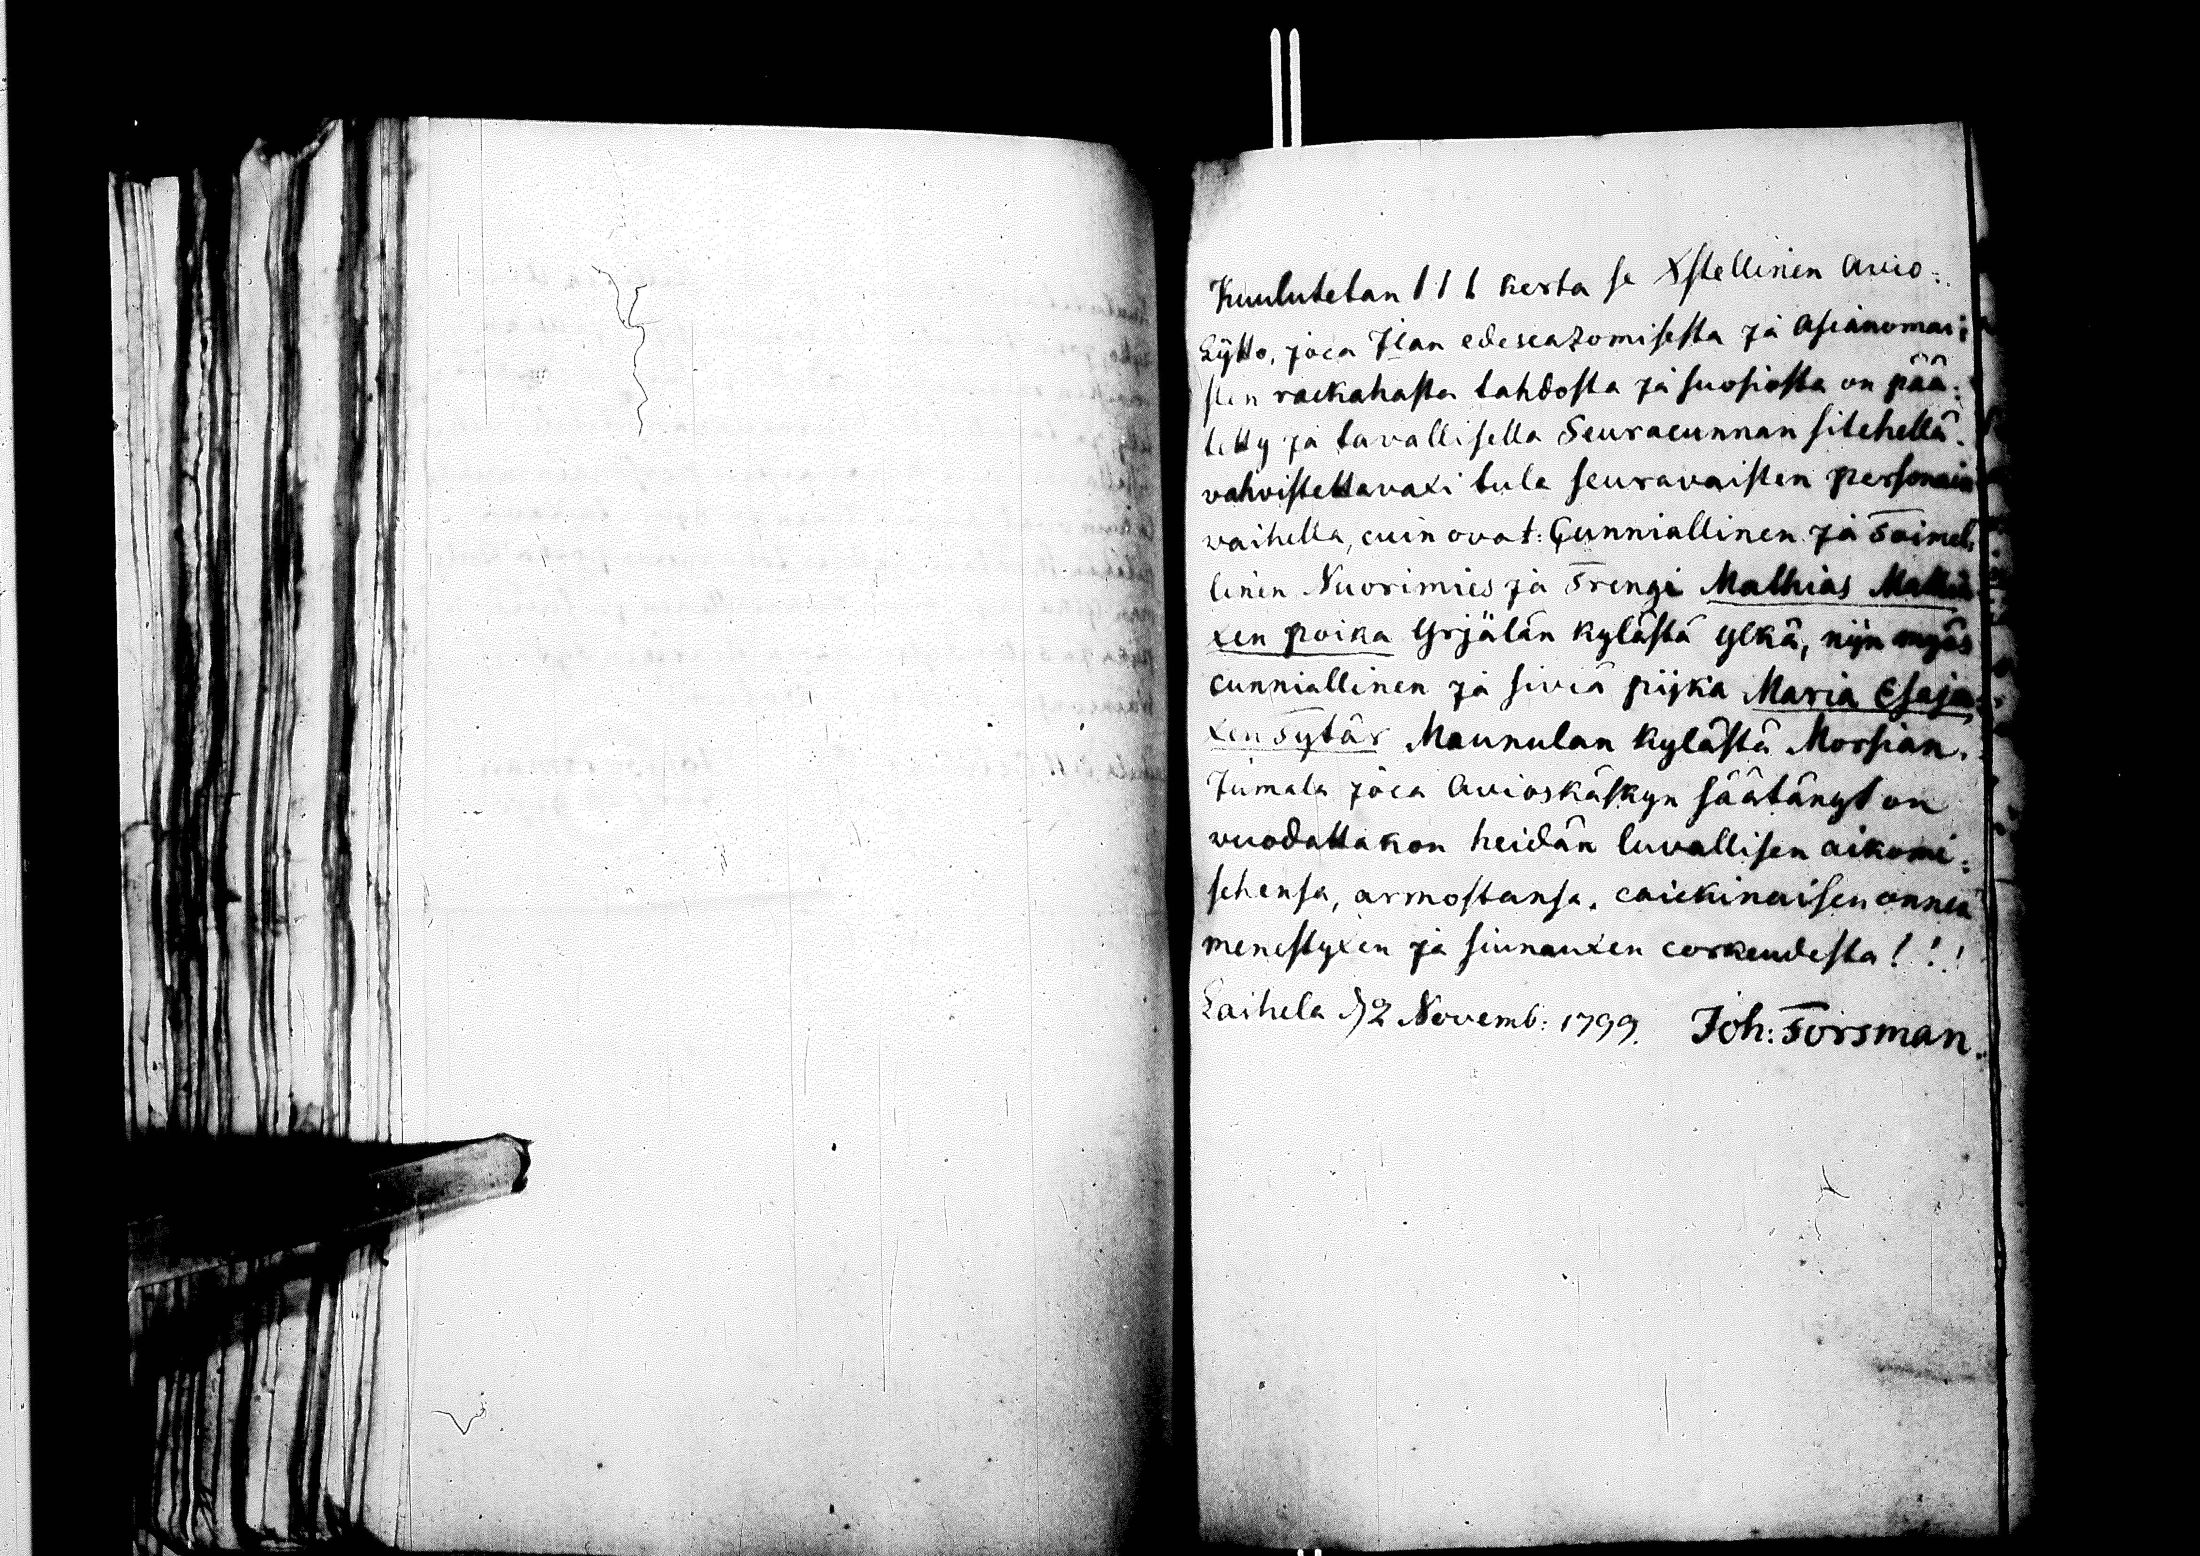 Kuulutetan 1 1 1 kerta se Xstellinen Avio-
Kytto, joca Jlan edescazomisesta ja Asianomai-
sten rackahasta tahdosta ja suosiosta on pää-
tetty ja tavallisella Seuracunnan sitehellä
vahvistettavaxi tule seuravaisten personain
vaihella, cuin ovat: Cunniallinen ja Toimel-
linen Nuorimies ja Trengi Mathias Mathia-
xen poika Yrjälän kylästä Ylkä, nijn myös
cunniallinen ja siviä pijka Maria Esaja-
xen Tytär Maunulan kylästä Morsian.
Jumala joca Avioskäskyn säätänyt on
vuodattakon heidän luvallisen aikomi-
sehensa, armostansa, caickinaisen onnen
menestyxen ja siunauxen corkeudesta!!!
Laihela D 2 Novemb: 1799. Joh: Forsman.